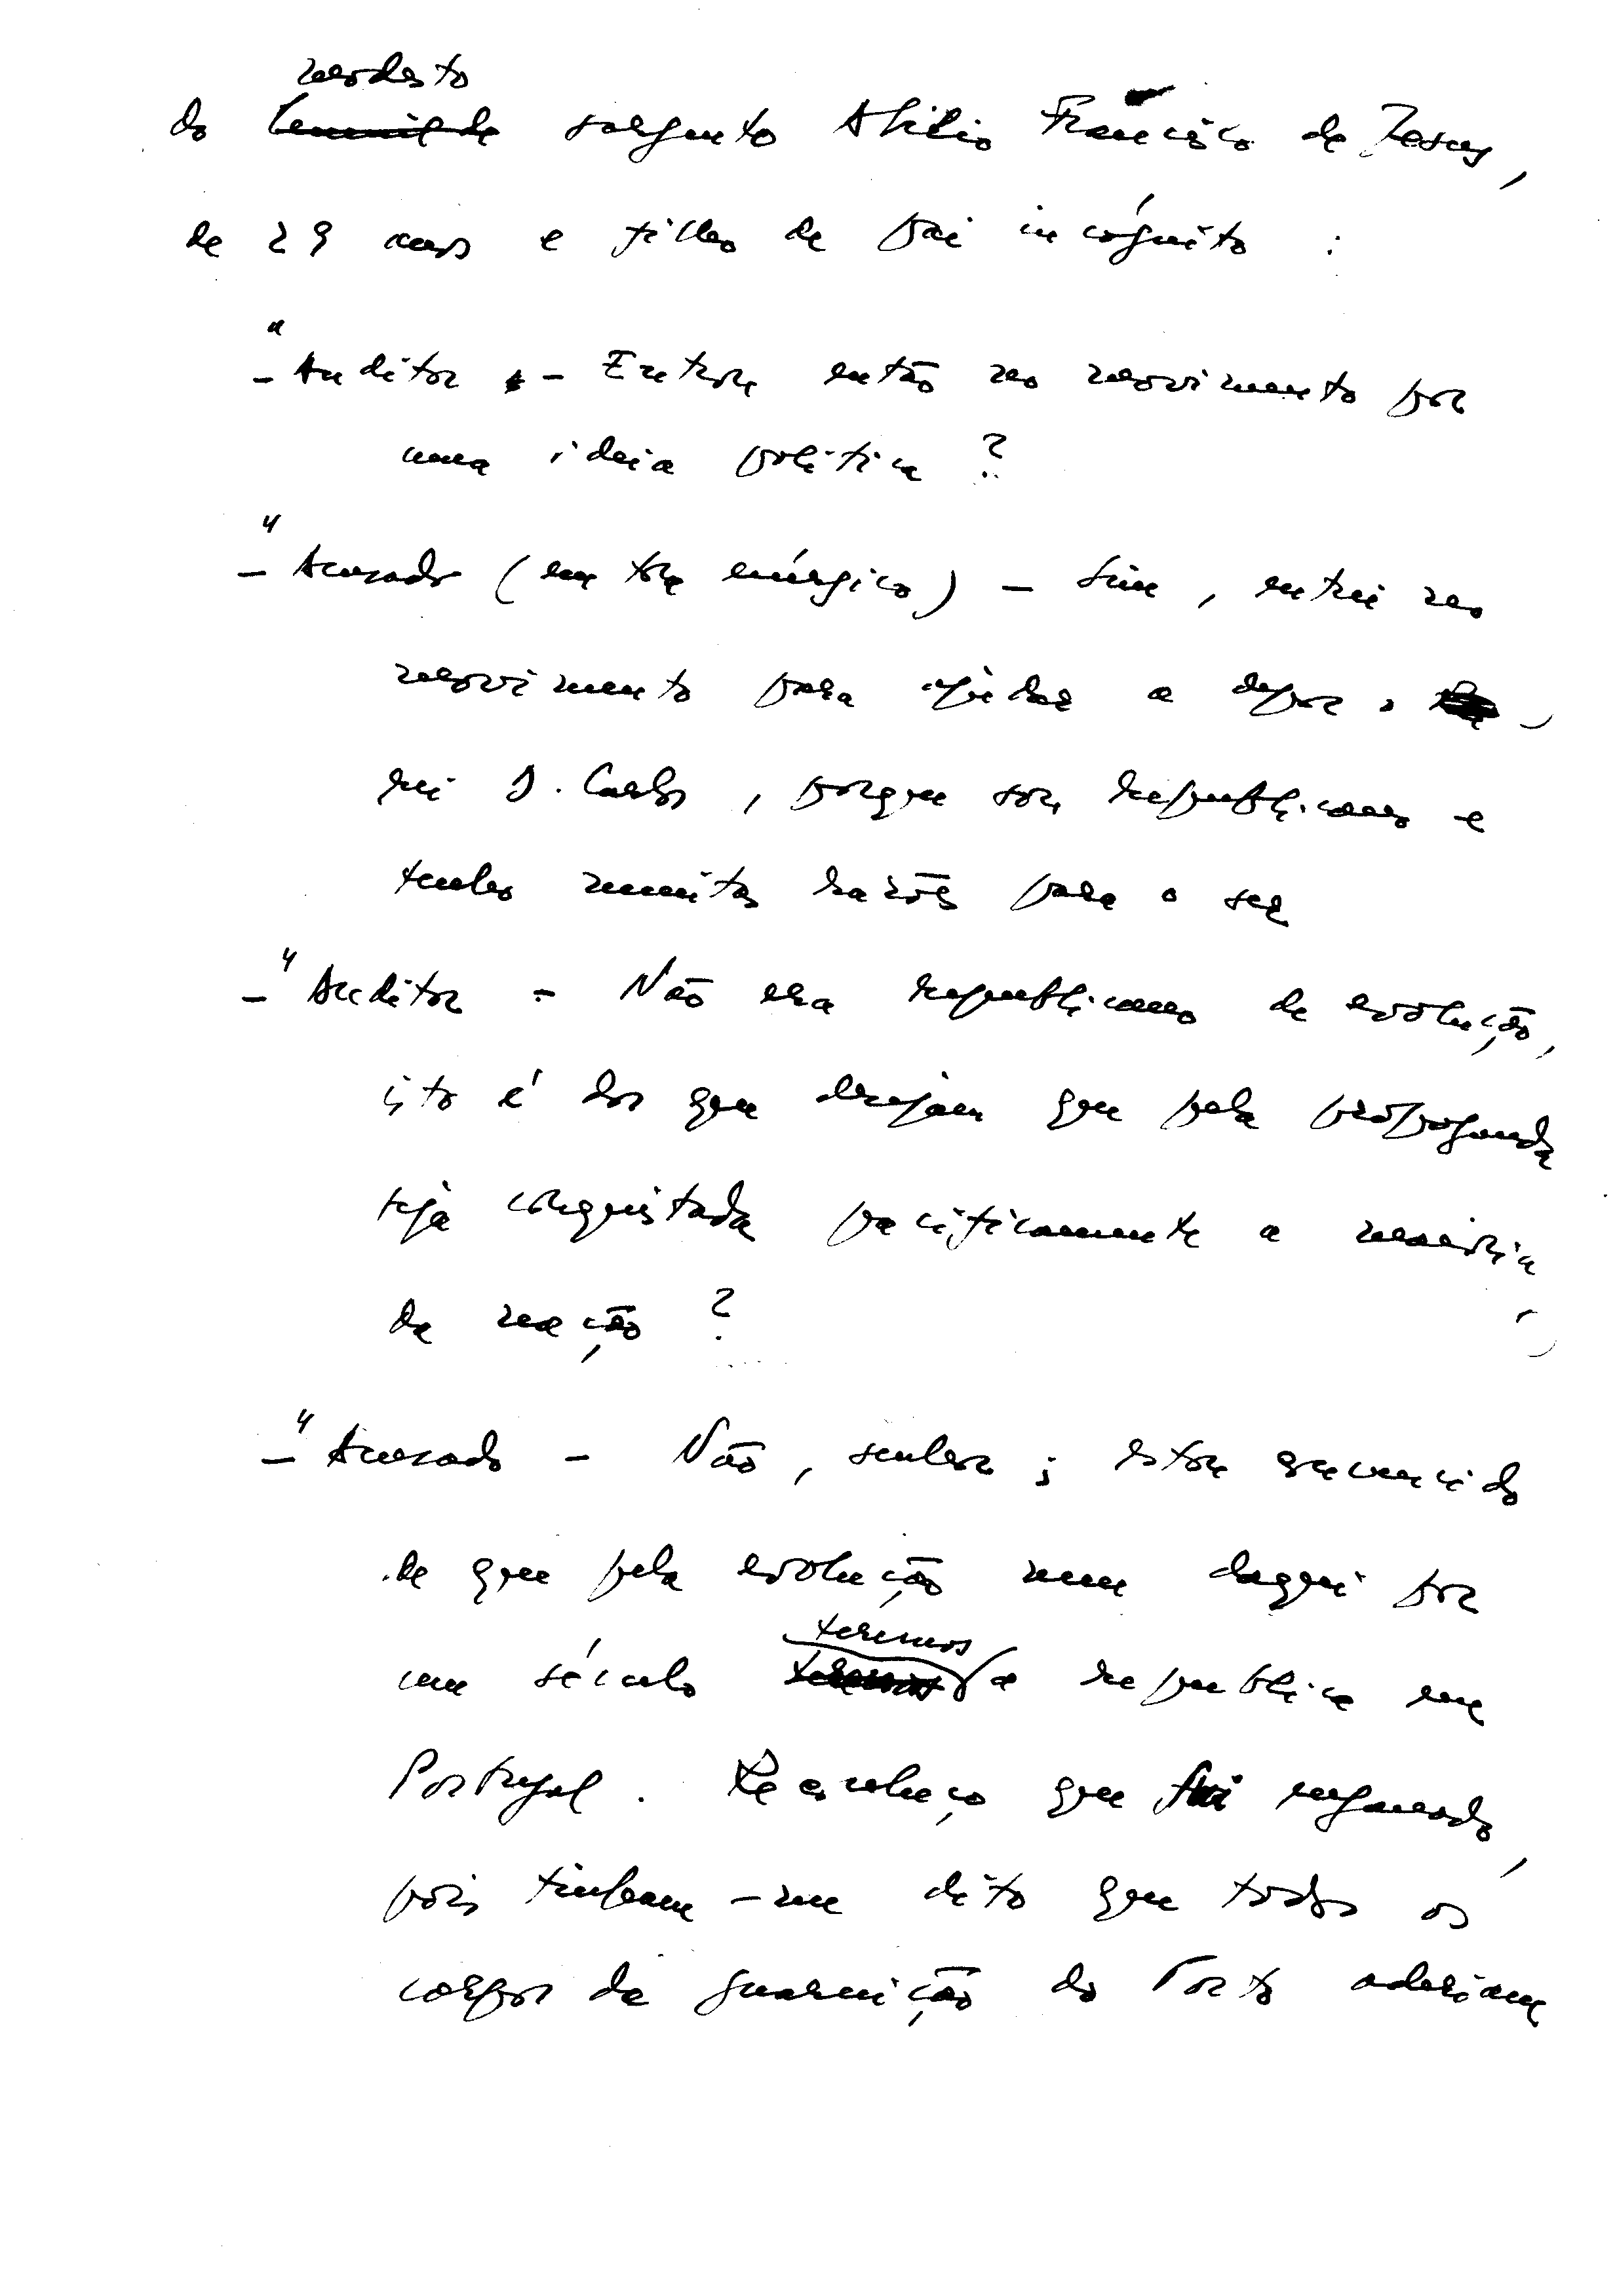 modesto
do humilde sargento Abilio Francisco de Jesus,
de 29 anos e filho de pai incógnito :
"
- Auditor - Entrou então no movimento por
uma ideia politica ?
"
- Acusado (em tom enérgico) - Sim, entrei no
movimento para ajudar a depor o
rei D. Carlos, porque sou republicano e
tenho muitas razões para o ser
- " Auditor - Não era republicano de evolução,
isto é dos que desejam que pela propaganda
seja conquistada pacificamente a maioria
da nação ?
- " Acusado - Não, senhor ; estou convencido
de que pela evolução nem daqui por
teremos
um século a republica em
Portugal. Reconheço que fui enganado,
pois tinham-me dito que todos os
corpos da guarnição do Porto aderiam